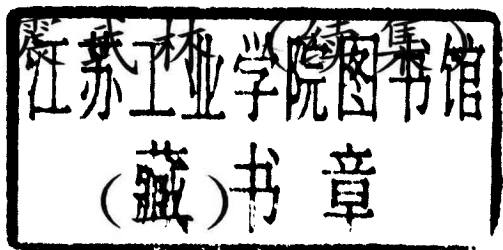 震武林（续集）
江苏工业学院图书馆
藏书章